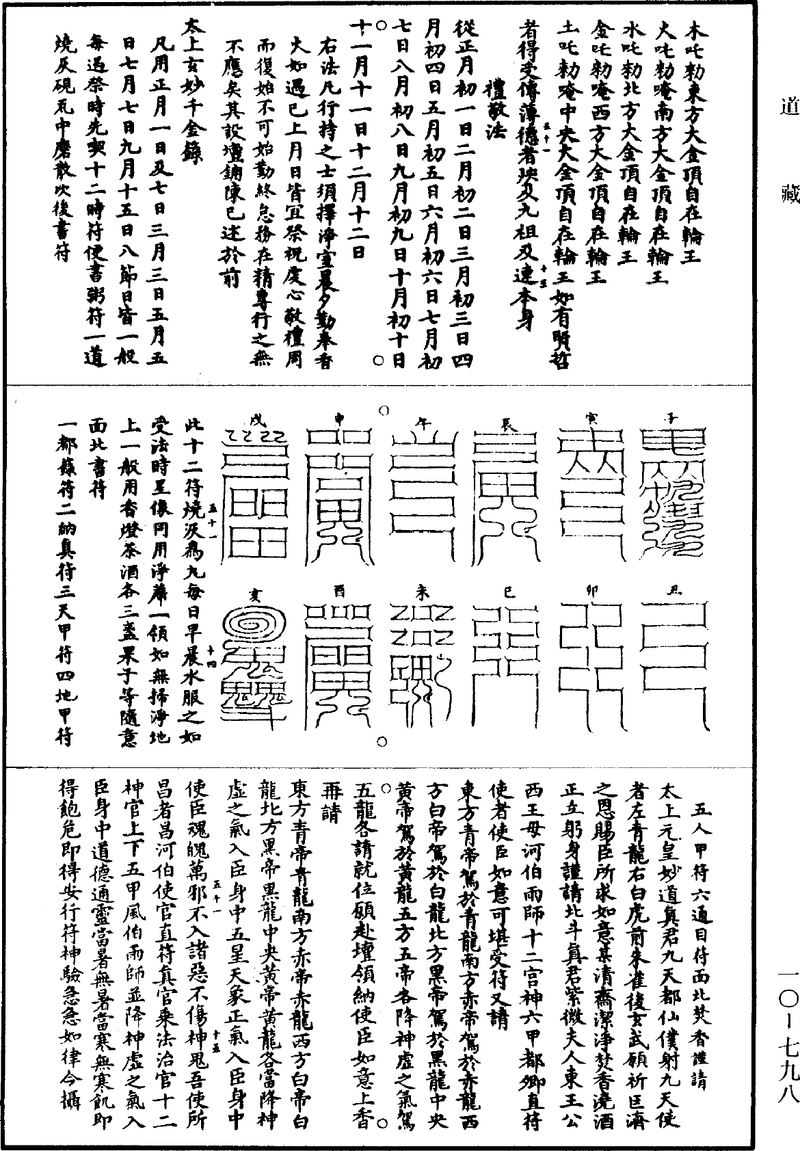 道藏
木吒勑東方大金頂自在輪王
火吒勑唵南方大金頂自在輪王
水吒勑北方大金頂自在輪王
金吒勑唵西方大金頂自在輪王
土吒勑唵中央大金頂自在輪王如有明哲
者得受傳薄德者殃及九祖及連本身
五十一
十三
禮敬法
從正月初一日二月初二日三月初三日四
月初四日五月初五日六月初六日七月初
七日八月初八日九月初九日十月初十日
十一月十一日十二月十二日
右法凡行持之士須擇淨室晨夕勤奉香
火如遇已上月日皆宜祭祝虔心敬禮周
而復始不可始勤終怠務在精專行之無
不應矣其設壇鋪陳已述於前
太上玄妙千金籙
凡用正月一日及七日三月三日五月五
日七月七日九月十五日八節日皆一般
每遇祭時先喫十二時符便書粥符一道
燒灰硯瓦中磨散次後書符
子
寅
辰
午
申
戌
丑
卯
巳
未
酉
亥
此十二符燒灰為丸每日早晨水服之如
五十一
十四
受法時星像同用淨蓆一領如無掃淨地
上一般用香燈茶酒各三盞果子等隨意
面北書符
一都籙符二納真符三天甲符四地甲符
五人甲符六通目符面北焚香謹請
太上元皇妙道真君九天都仙僕射九天使
者左青龍右白虎前朱雀後玄武願祈匡濟
之恩賜臣所求如意某清齋潔淨焚香澆酒
正立躬身謹請北斗真君紫微夫人東王公
西王母河伯雨師十二宮神六甲都鄉直符
使者使臣如意可堪受符又請
東方青帝駕於青龍南方赤帝駕於赤龍西
方白帝駕於白龍北方黑帝駕於黑龍中央
黃帝駕於黃龍五方五帝各降神虛之氣駕
五龍各請就位願赴壇領納使臣如意上香
再請
東方青帝青龍南方赤帝赤龍西方白帝白
龍北方黑帝黑龍中央黃帝黃龍各當降神
虛之氣入臣身中五星天象正氣入臣身中
使臣魂魄萬邪不入諸惡不傷神鬼吾使所
五十一
十五
昌者昌河伯使官直符真官乘法治官十二
神官上下五甲風伯雨師並降神虛之氣入
臣身中道德通靈當暑無暑當寒無寒飢即
得飽危即得安行符神驗急急如律令攝
一〇–七九八